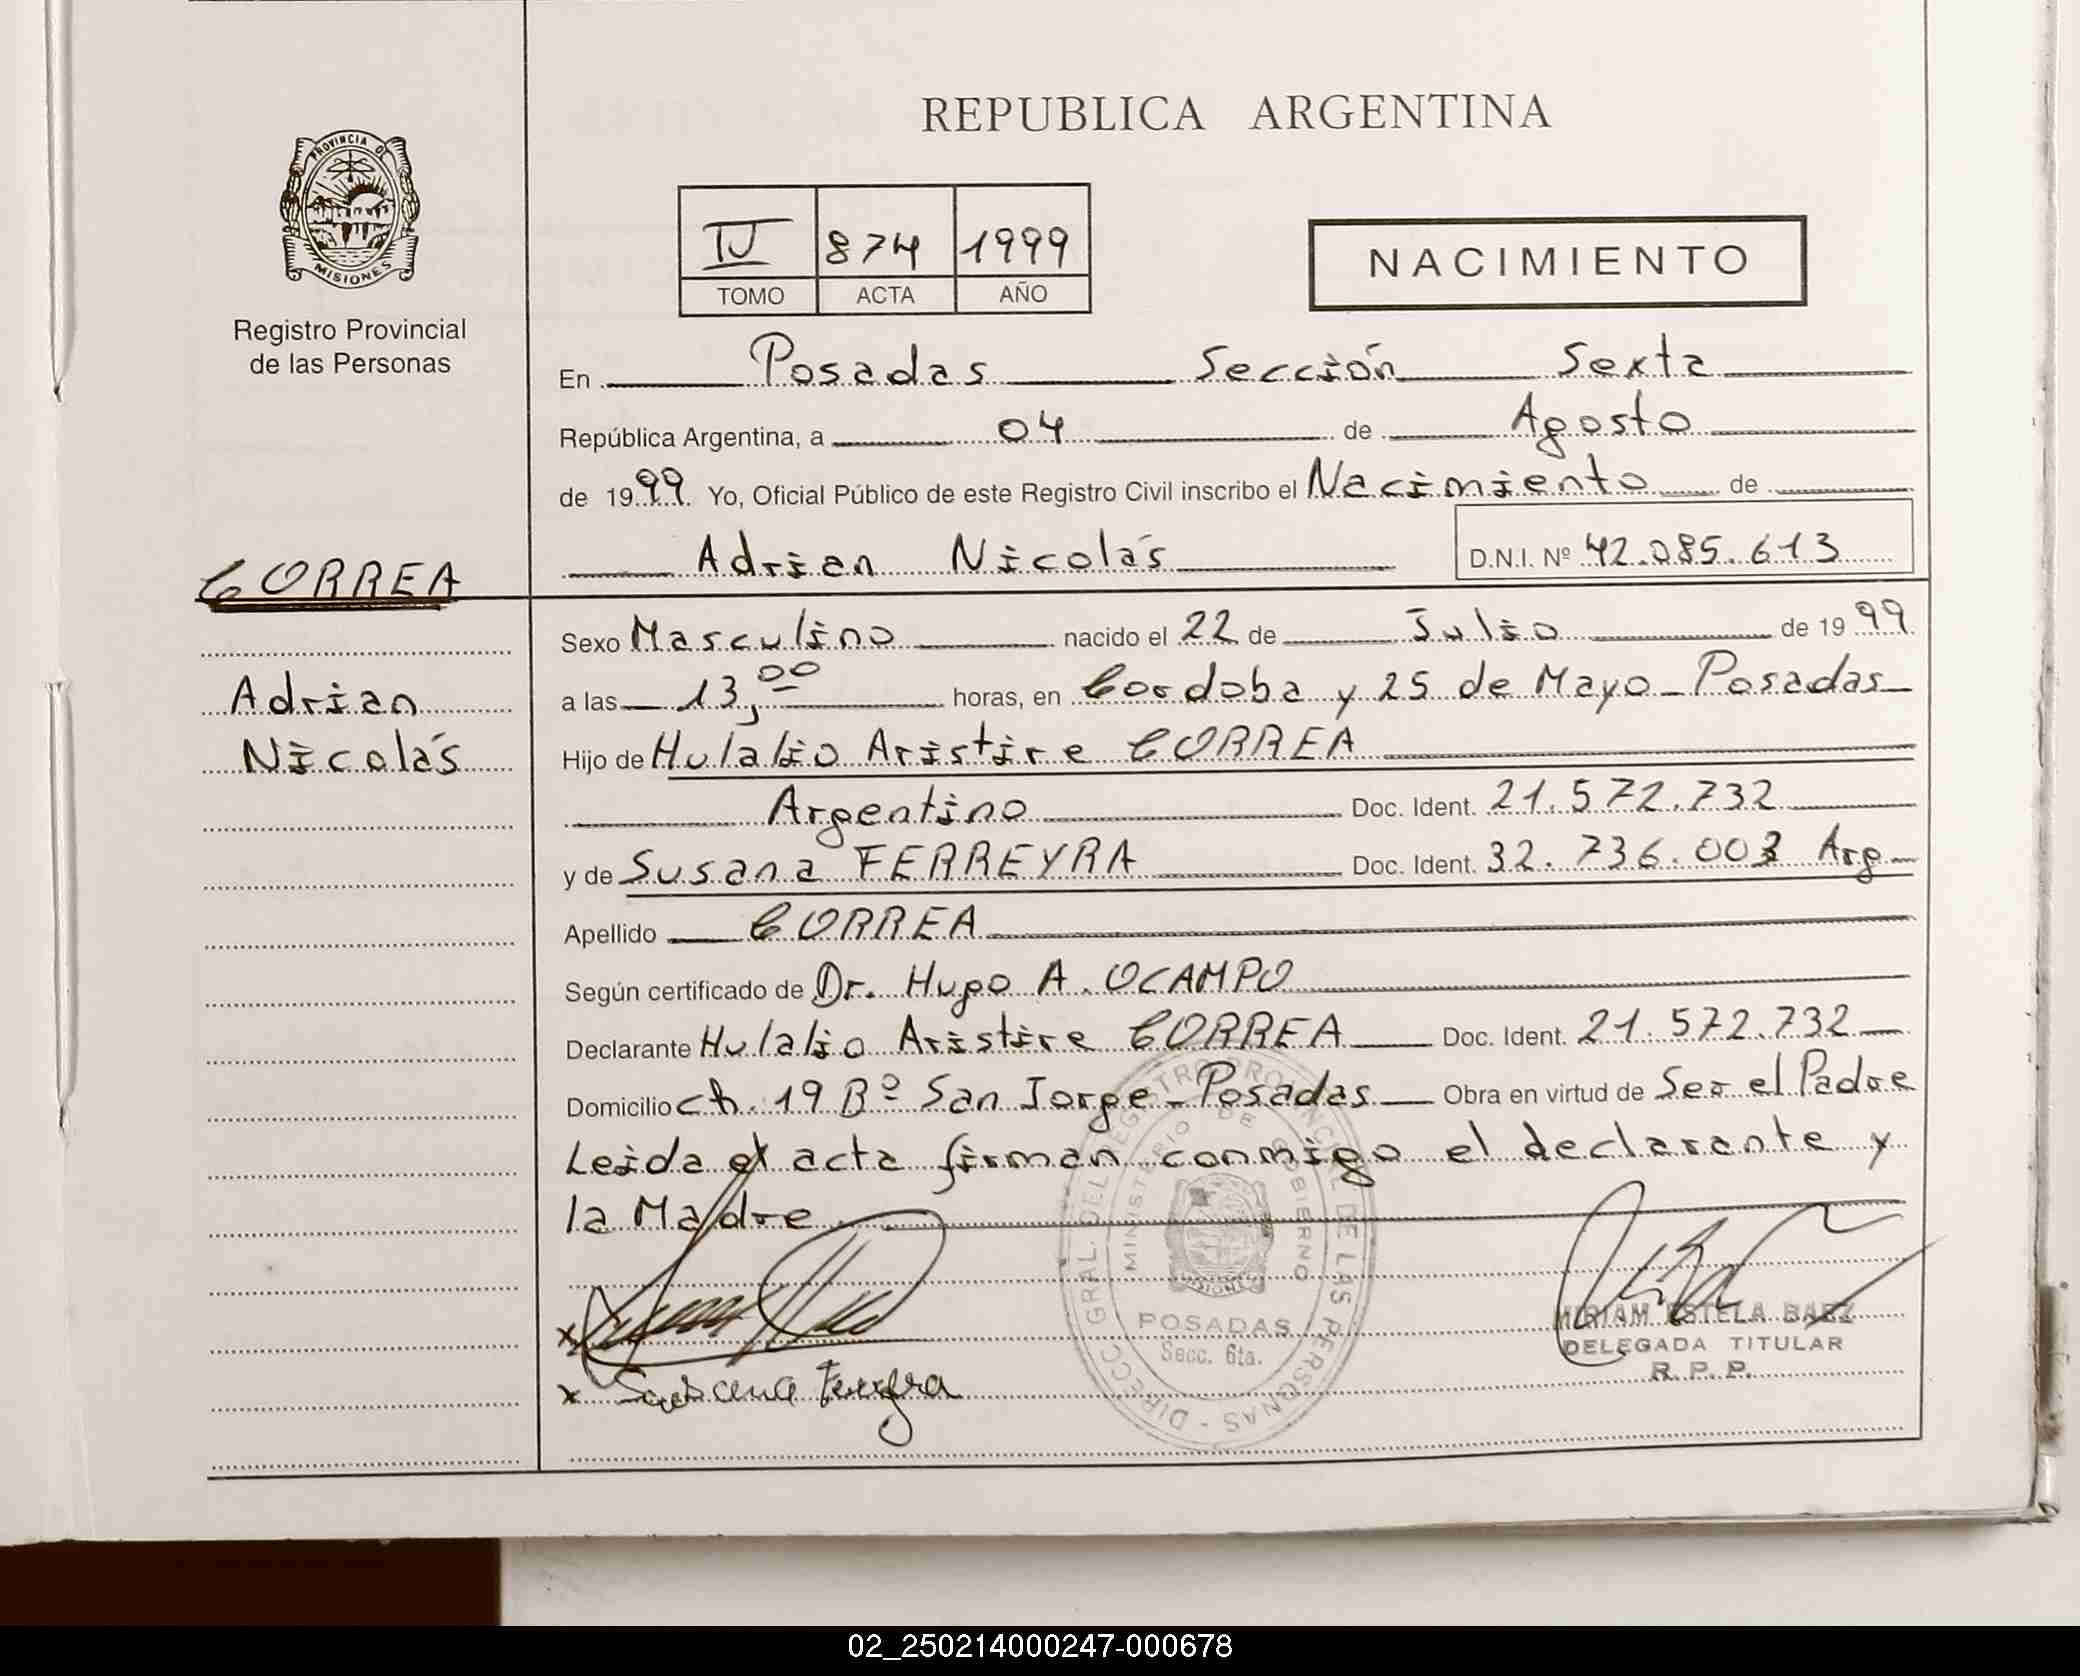 REPUBLICA ARGENTINA
PROVINCIA DE
MISIONES
Registro Provincial
de las Personas
IV 874 1999
TOMO ACTA AÑO
NACIMIENTO
En Posadas Sección Sexta
República Argentina, a 04 de Agosto
de 1999 Yo, Oficial Público de este Registro Civil inscribo el Nacimiento de
Adrian Nicolás D.N.I. Nº 42.085.613
CORREA
Adrian
Nicolás
Sexo Masculino nacido el 22 de Julio de 1999
a las 13,00 horas, en Cordoba y 25 de Mayo - Posadas
Hijo de Hulalio Aristire CORREA
Argentino Doc. Ident. 21.572.732
y de Susana FERREYRA Doc. Ident. 32.736.003 Arg
Apellido CORREA
Según certificado de Dr. Hugo A. OCAMPO
Declarante Hulalio Aristire CORREA Doc. Ident. 21.572.732
Domicilio ch. 19 Bº San Jorge - Posadas Obra en virtud de Ser el Padre
Leida el acta firman conmigo el declarante y
la Madre
DIRECC. GRAL. DEL REGISTRO PROVINCIAL DE LAS PERSONAS
MINISTERIO DE GOBIERNO
MISIONES
POSADAS
Secc. 6ta.
MIRIAM ESTELA BAEZ
DELEGADA TITULAR
R.P.P.
x
x Susana Ferreyra
02_250214000247-000678